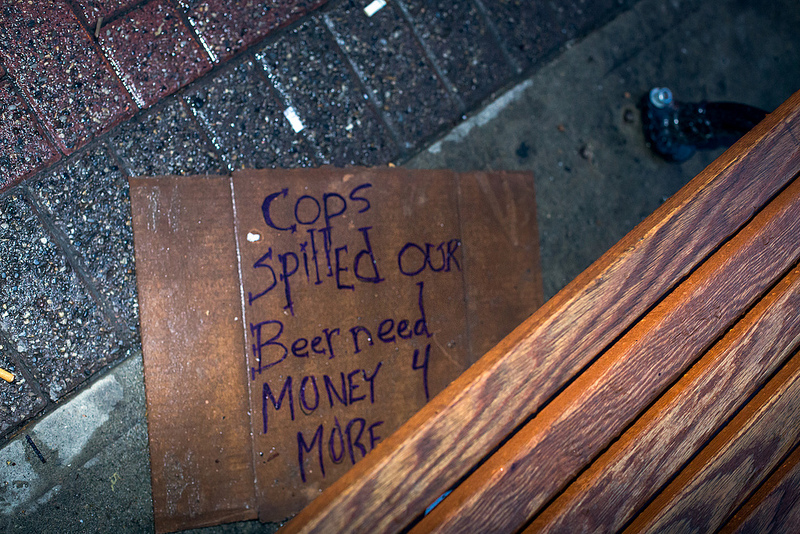 COPS
SpillEd OUR
Beer need
MONEY 4
MORE